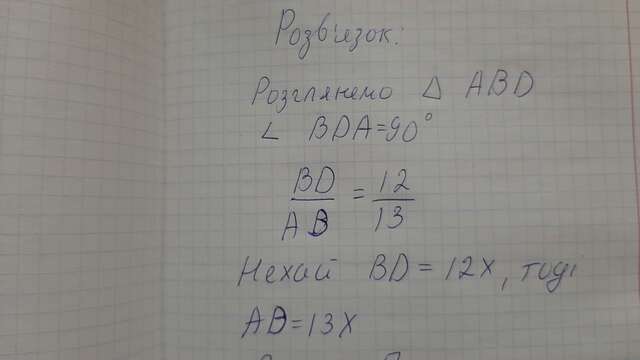 Розв'язок:
Розглянемо △ ABD
∠ BDA=90°
BD/AB = 12/13
Нехай BD = 12x, тоді
AB=13x